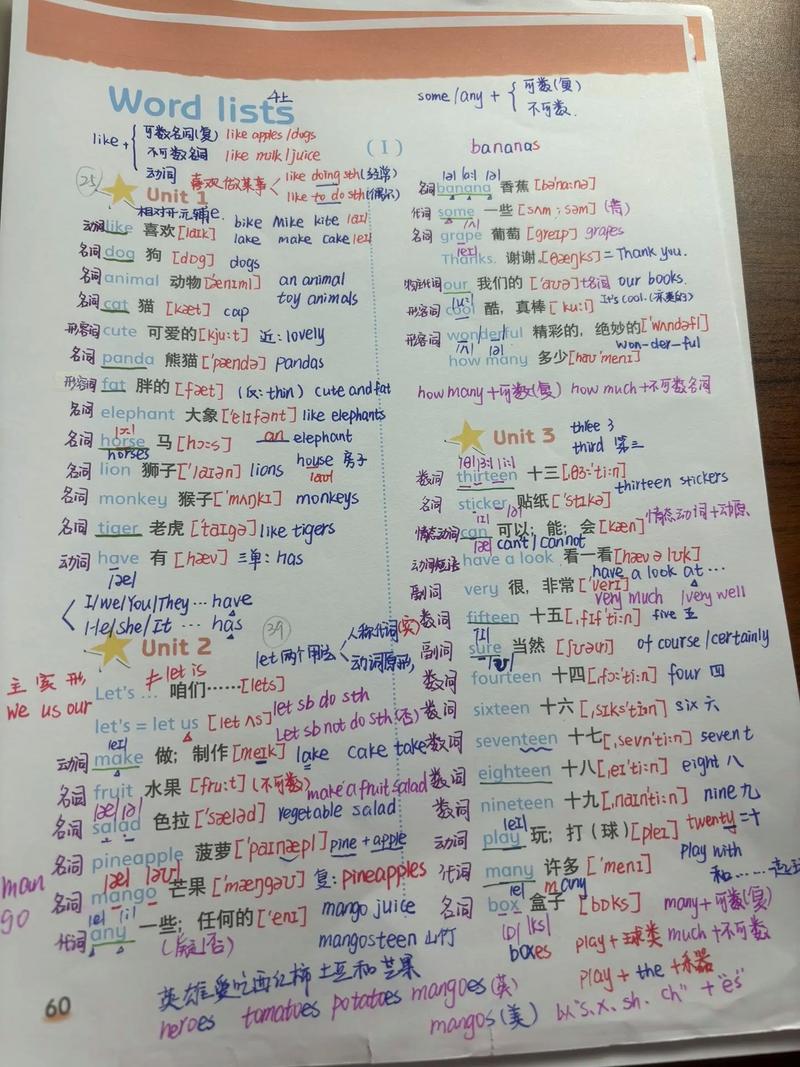 Word lists 4上
(I)
like + { 可数名词(复) like apples/dogs
不可数名词 like milk/juice
动词 喜欢做某事 < like doing sth(经常)
like to do sth(偶尔)
25
Unit 1
相对开元辅e. bike Mike kite [aɪ]
lake make cake [eɪ]
动词 like 喜欢 [laɪk]
名词 dog 狗 [dɒg] dogs
名词 animal 动物 ['ænɪml] an animal
toy animals
名词 cat 猫 [kæt] cap
形容词 cute 可爱的 [kju:t] 近: lovely
名词 panda 熊猫 ['pændə] pandas
形容词 fat 胖的 [fæt] (反: thin) cute and fat
名词 elephant 大象 ['elɪfənt] like elephants
an elephant
|ɔ:|
名词 horse 马 [hɔ:s]
horses house 房子
|aʊ|
名词 lion 狮子 ['laɪən] lions
名词 monkey 猴子 ['mʌŋkɪ] monkeys
名词 tiger 老虎 ['taɪgə] like tigers
动词 have 有 [hæv] 三单: has
|æ|
I/we/You/They … have
He/she/It … has
39
Unit 2
let 两个用法 < 人称代词(宾)
动词原形
主 宾 形
we us our
≠ let is
Let's … 咱们…… [lets]
let's = let us [let ʌs] let sb do sth
Let sb not do sth(否)
|eɪ|
动词 make 做；制作 [meɪk] lake cake take
名词 fruit 水果 [fru:t] (不可数) make a fruit salad
|æ| |ə|
名词 salad 色拉 ['sæləd] vegetable salad
名词 pineapple 菠萝 ['paɪnæpl] pine + apple
|æ| |əʊ|
man
go
名词 mango 芒果 ['mæŋgəʊ] 复: pineapples
mango juice
|e| |i|
代词 any 一些；任何的 ['enɪ]
(疑否) mangosteen 山竹
英雄爱吃西红柿 土豆和芒果
heroes tomatoes potatoes mangoes(英)
mangos(美)
60
some/any + { 可数(复)
不可数.
bananas
|ə| |ɑ:| |ə|
名词 banana 香蕉 [bə'nɑ:nə]
代词 some 一些 [sʌm ; səm] (肯)
|ʌ|
名词 grape 葡萄 [greɪp] grapes
|eɪ|
Thanks. 谢谢。[θæŋks] = Thank you.
our 我们的 ['aʊə] +名词 our books.
形容词 cool 酷，真棒 [ku:l] It's cool.
|u:|
形容词 wonderful 精彩的，绝妙的 ['wʌndəfl]
|ʌ| |ə| won-der-ful
how many 多少 [haʊ 'menɪ]
how many + 可数(复) how much + 不可数名词
Unit 3
three 3
third 第三
|θ| |ɜ:| |i:|
数词 thirteen 十三 [,θɜ:'ti:n]
thirteen stickers
名词 sticker 贴纸 ['stɪkə]
|ɪ| |ə|
情态动词 can 可以；能；会 [kæn] 情态动词+动原
|æ| can't / cannot
动词短语 have a look 看一看 [hæv ə lʊk]
have a look at …
副词 very 很，非常 ['verɪ]
very much / very well
数词 fifteen 十五 [,fɪf'ti:n] five 五
|ɪ|
副词 sure 当然 [ʃʊəʊ] of course / certainly
数词 fourteen 十四 [,fɔ:'ti:n] four 四
数词 sixteen 十六 [,sɪks'ti:n] six 六
数词 seventeen 十七 [,sevn'ti:n] seven 七
数词 eighteen 十八 [,eɪ'ti:n] eight 八
数词 nineteen 十九 [,naɪn'ti:n] nine 九
|eɪ|
动词 play 玩；打（球）[pleɪ] twenty 二十
play with
代词 many 许多 ['menɪ]
|e| many
名词 box 盒子 [bɒks] many + 可数(复)
|ɒ| |ks| boxes
play + 球类 much + 不可数
play + the + 乐器
以"s、x、sh、ch" + "es"